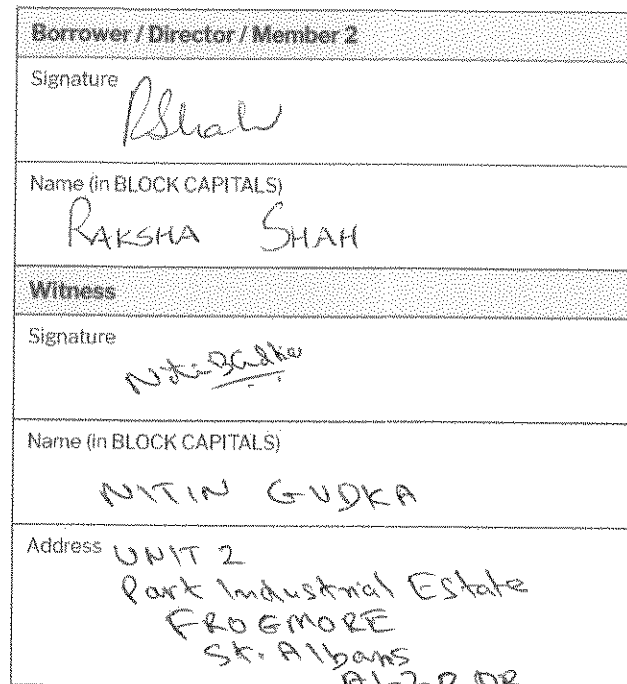 Borrower / Director / Member 2
Signature
RShah
Name (in BLOCK CAPITALS)
RAKSHA SHAH
Witness
Signature
Name (in BLOCK CAPITALS)
NITIN GUDKA
Address UNIT 2
Park Industrial Estate
FROGMORE
St. Albans